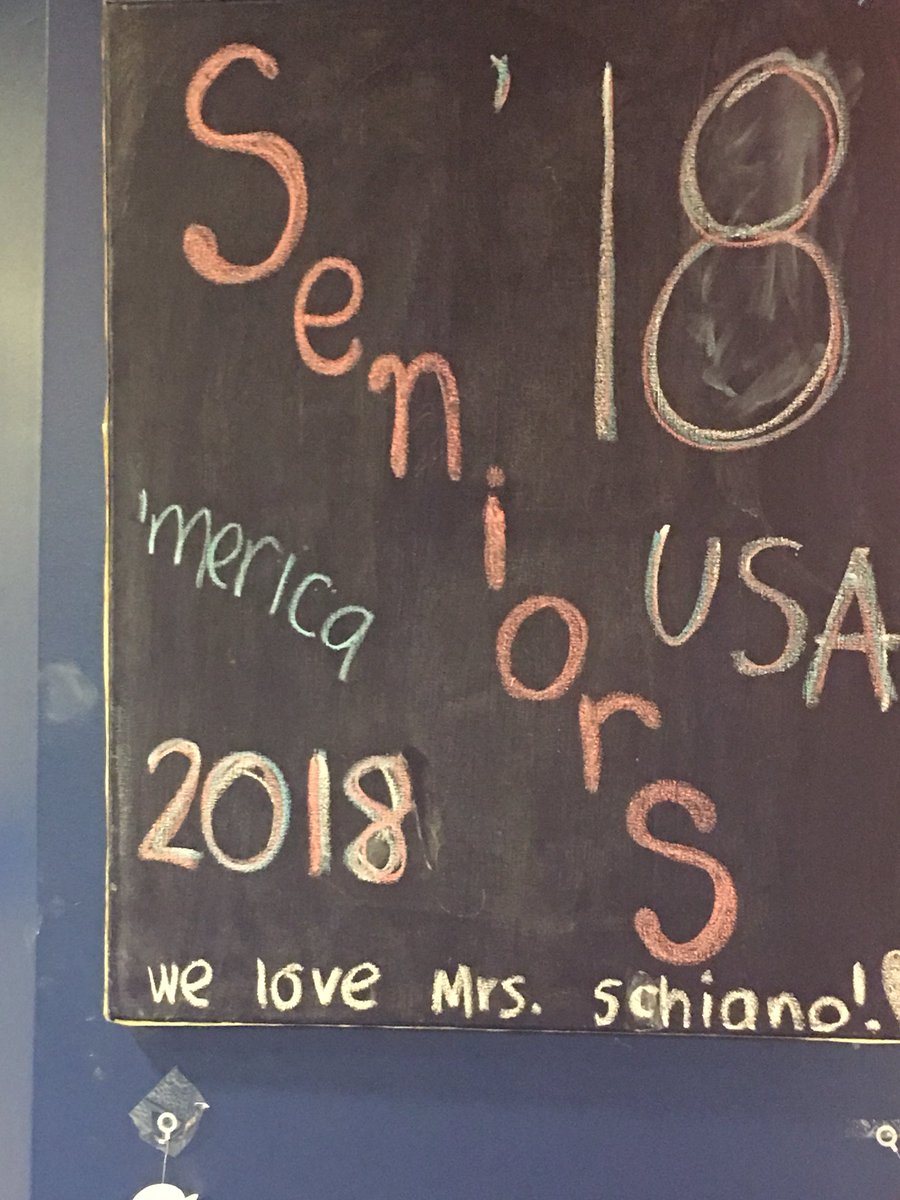 Seniors
'18
'merica
USA
2018
we love Mrs. Schiano!